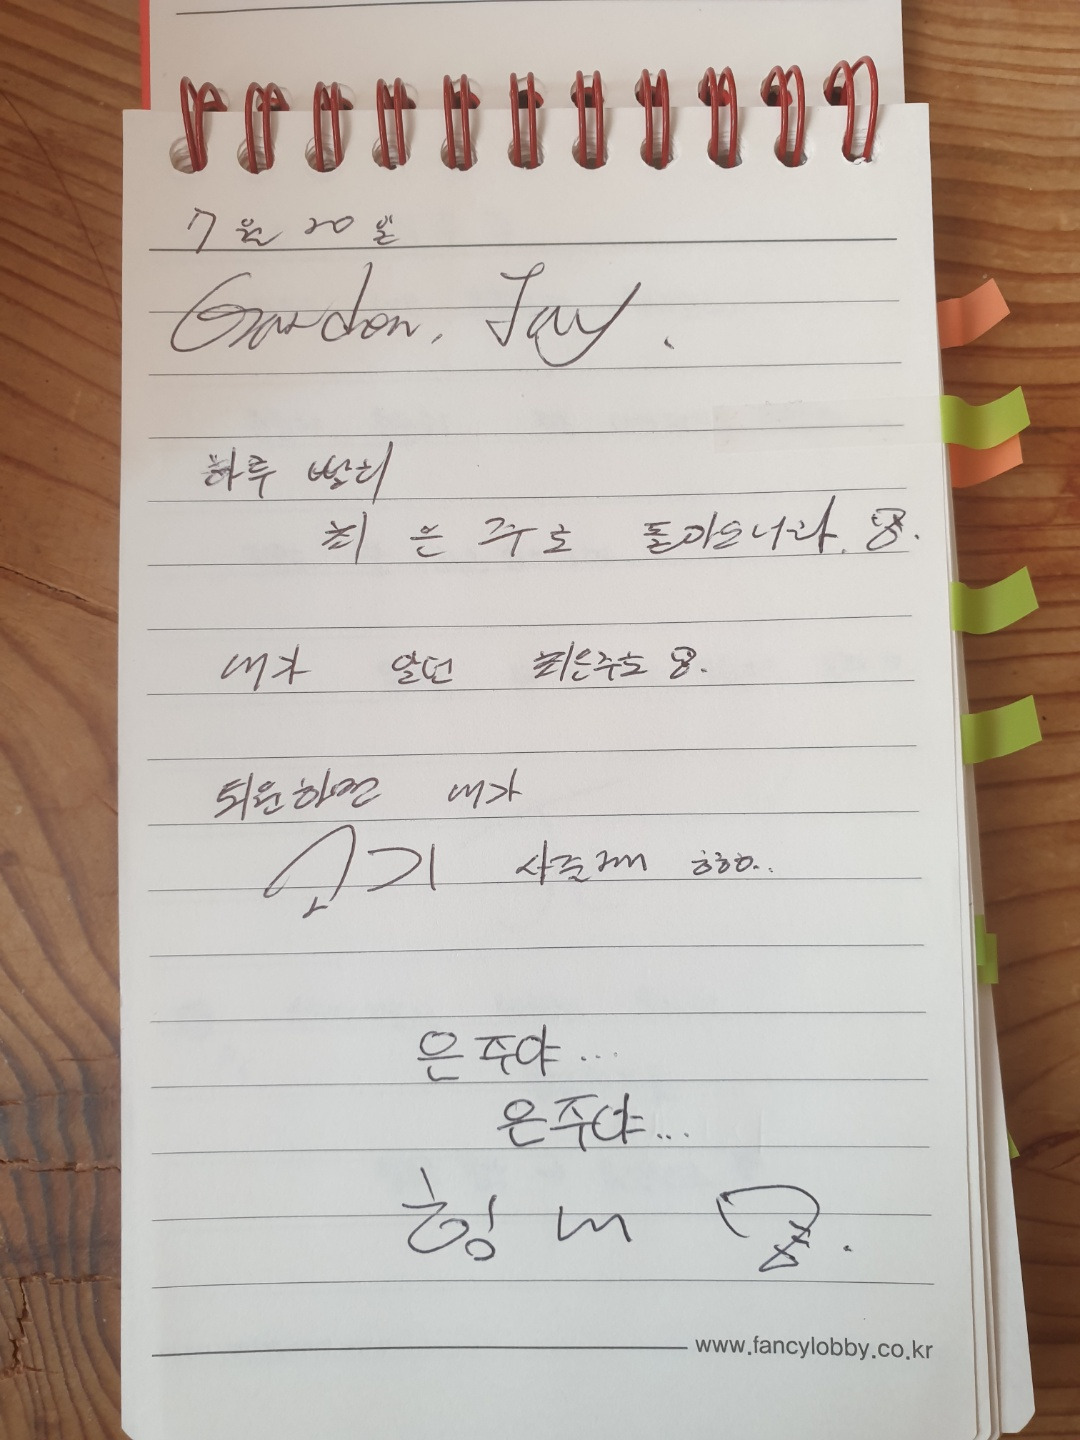 7월 20일
Gordon, Jay.
하루 빨리
최은주로 돌아오너라.
내가 알던 최은주로
퇴원하면 내가
고기 사줄께 ㅎㅎㅎ..
은주야...
은주야...
힘내
www.fancylobby.co.kr